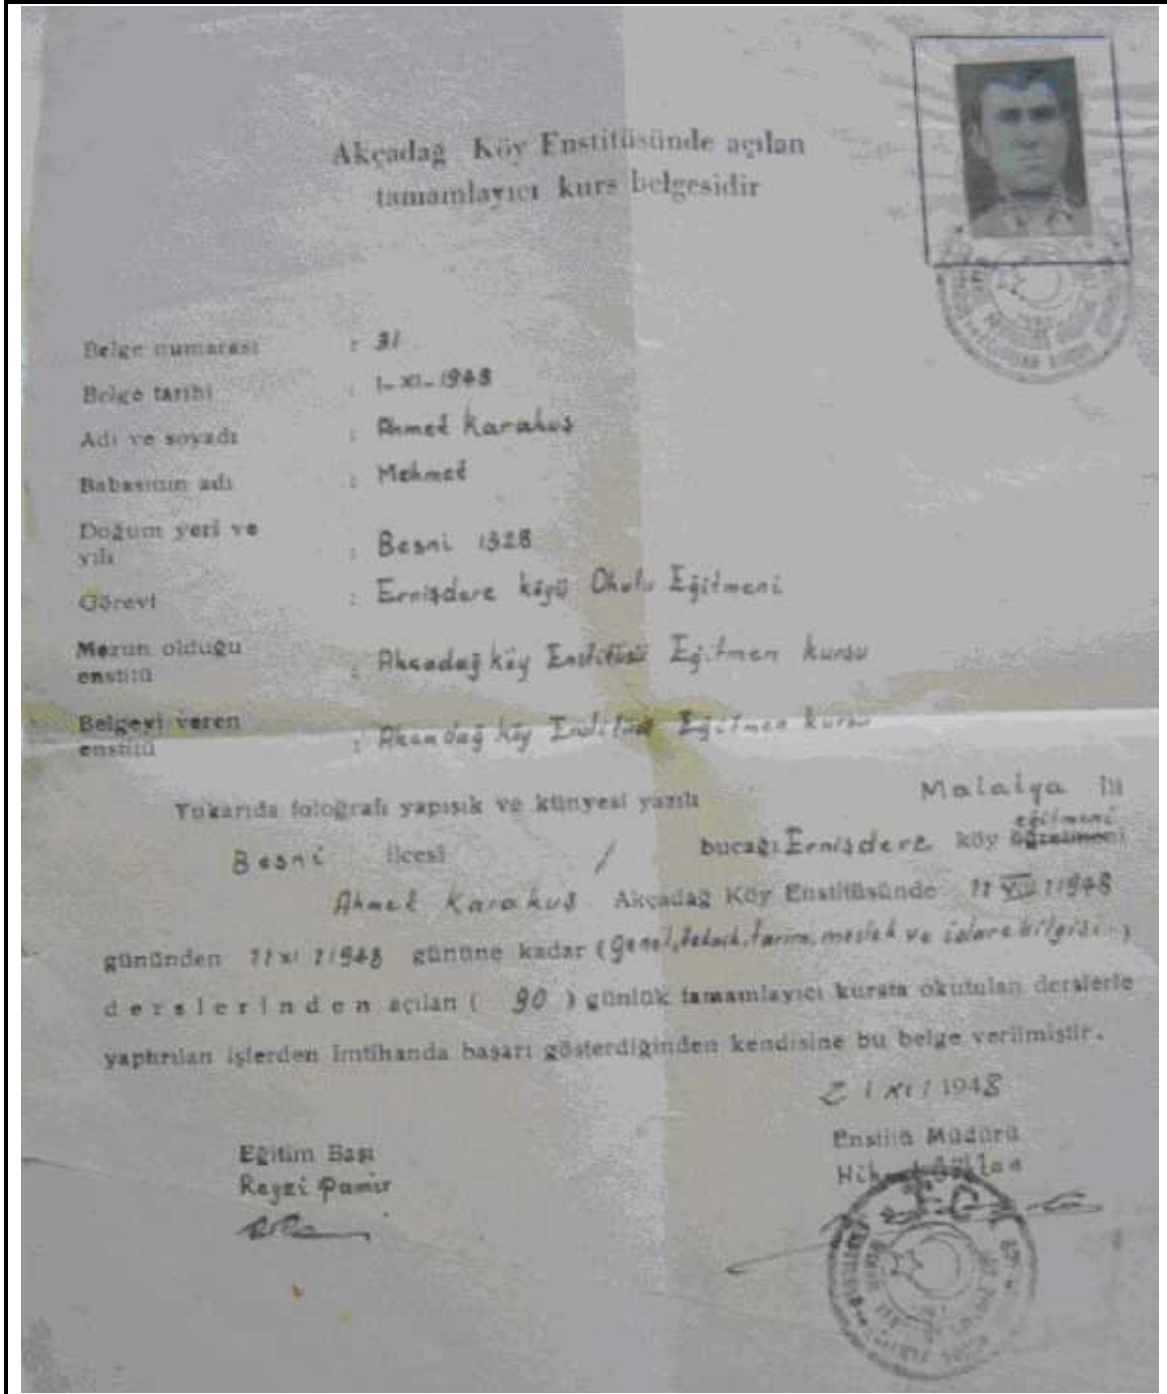 Akçadağ Köy Enstitüsünde açılan
tamamlayıcı kurs belgesidir
Belge numarası : 31
Belge tarihi : 1-XI-1948
Adı ve soyadı : Ahmet Karakuş
Babasının adı : Mehmet
Doğum yeri ve
yılı : Besni 1328
Görevi : Ernişdere köyü Okulu Eğitmeni
Mezun olduğu
enstitü : Akçadağ köy Enstitüsü Eğitmen kursu
Belgeyi veren
enstitü : Akçadağ köy Enstitüsü Eğitmen kursu
Yukarıda fotoğrafı yapışık ve künyesi yazılı Malatya ili
eğitmeni
Besni ilcesi / bucağı Ernişdere köy öğretmeni
Ahmet Karakuş Akçadağ Köy Enstitüsünde 1/VIII/1948
gününden 1/XI/1948 gününe kadar (genel, teknik, tarım, meslek ve idare bilgisi)
derslerinden açılan ( 90 ) günlük tamamlayıcı kursta okutulan derslerle
yaptırılan işlerden imtihanda başarı gösterdiğinden kendisine bu belge verilmiştir.
2 / XI / 1948
Eğitim Başı
Enstitü Müdürü
Pamir
T.C.